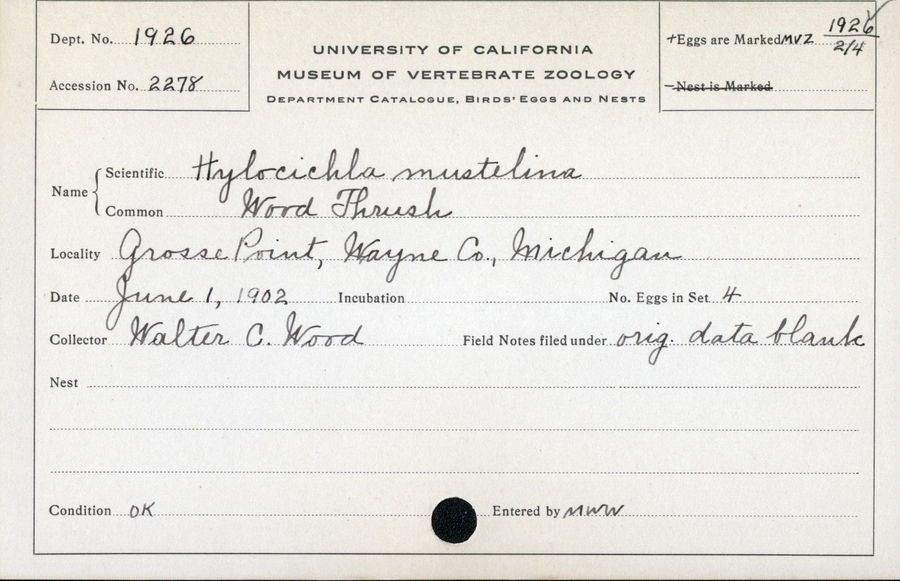 Dept. No. 1926
Accession No. 2278
UNIVERSITY OF CALIFORNIA
MUSEUM OF VERTEBRATE ZOOLOGY
DEPARTMENT CATALOGUE, BIRDS' EGGS AND NESTS
+Eggs are Marked MVZ 1926
2/4
-Nest is Marked
Name { Scientific Hylocichla mustelina
Common Wood Thrush
Locality Grosse Point, Wayne Co., Michigan
Date June 1, 1902 Incubation No. Eggs in Set 4
Collector Walter C. Wood Field Notes filed under orig. data blank
Nest
Condition OK Entered by MWW